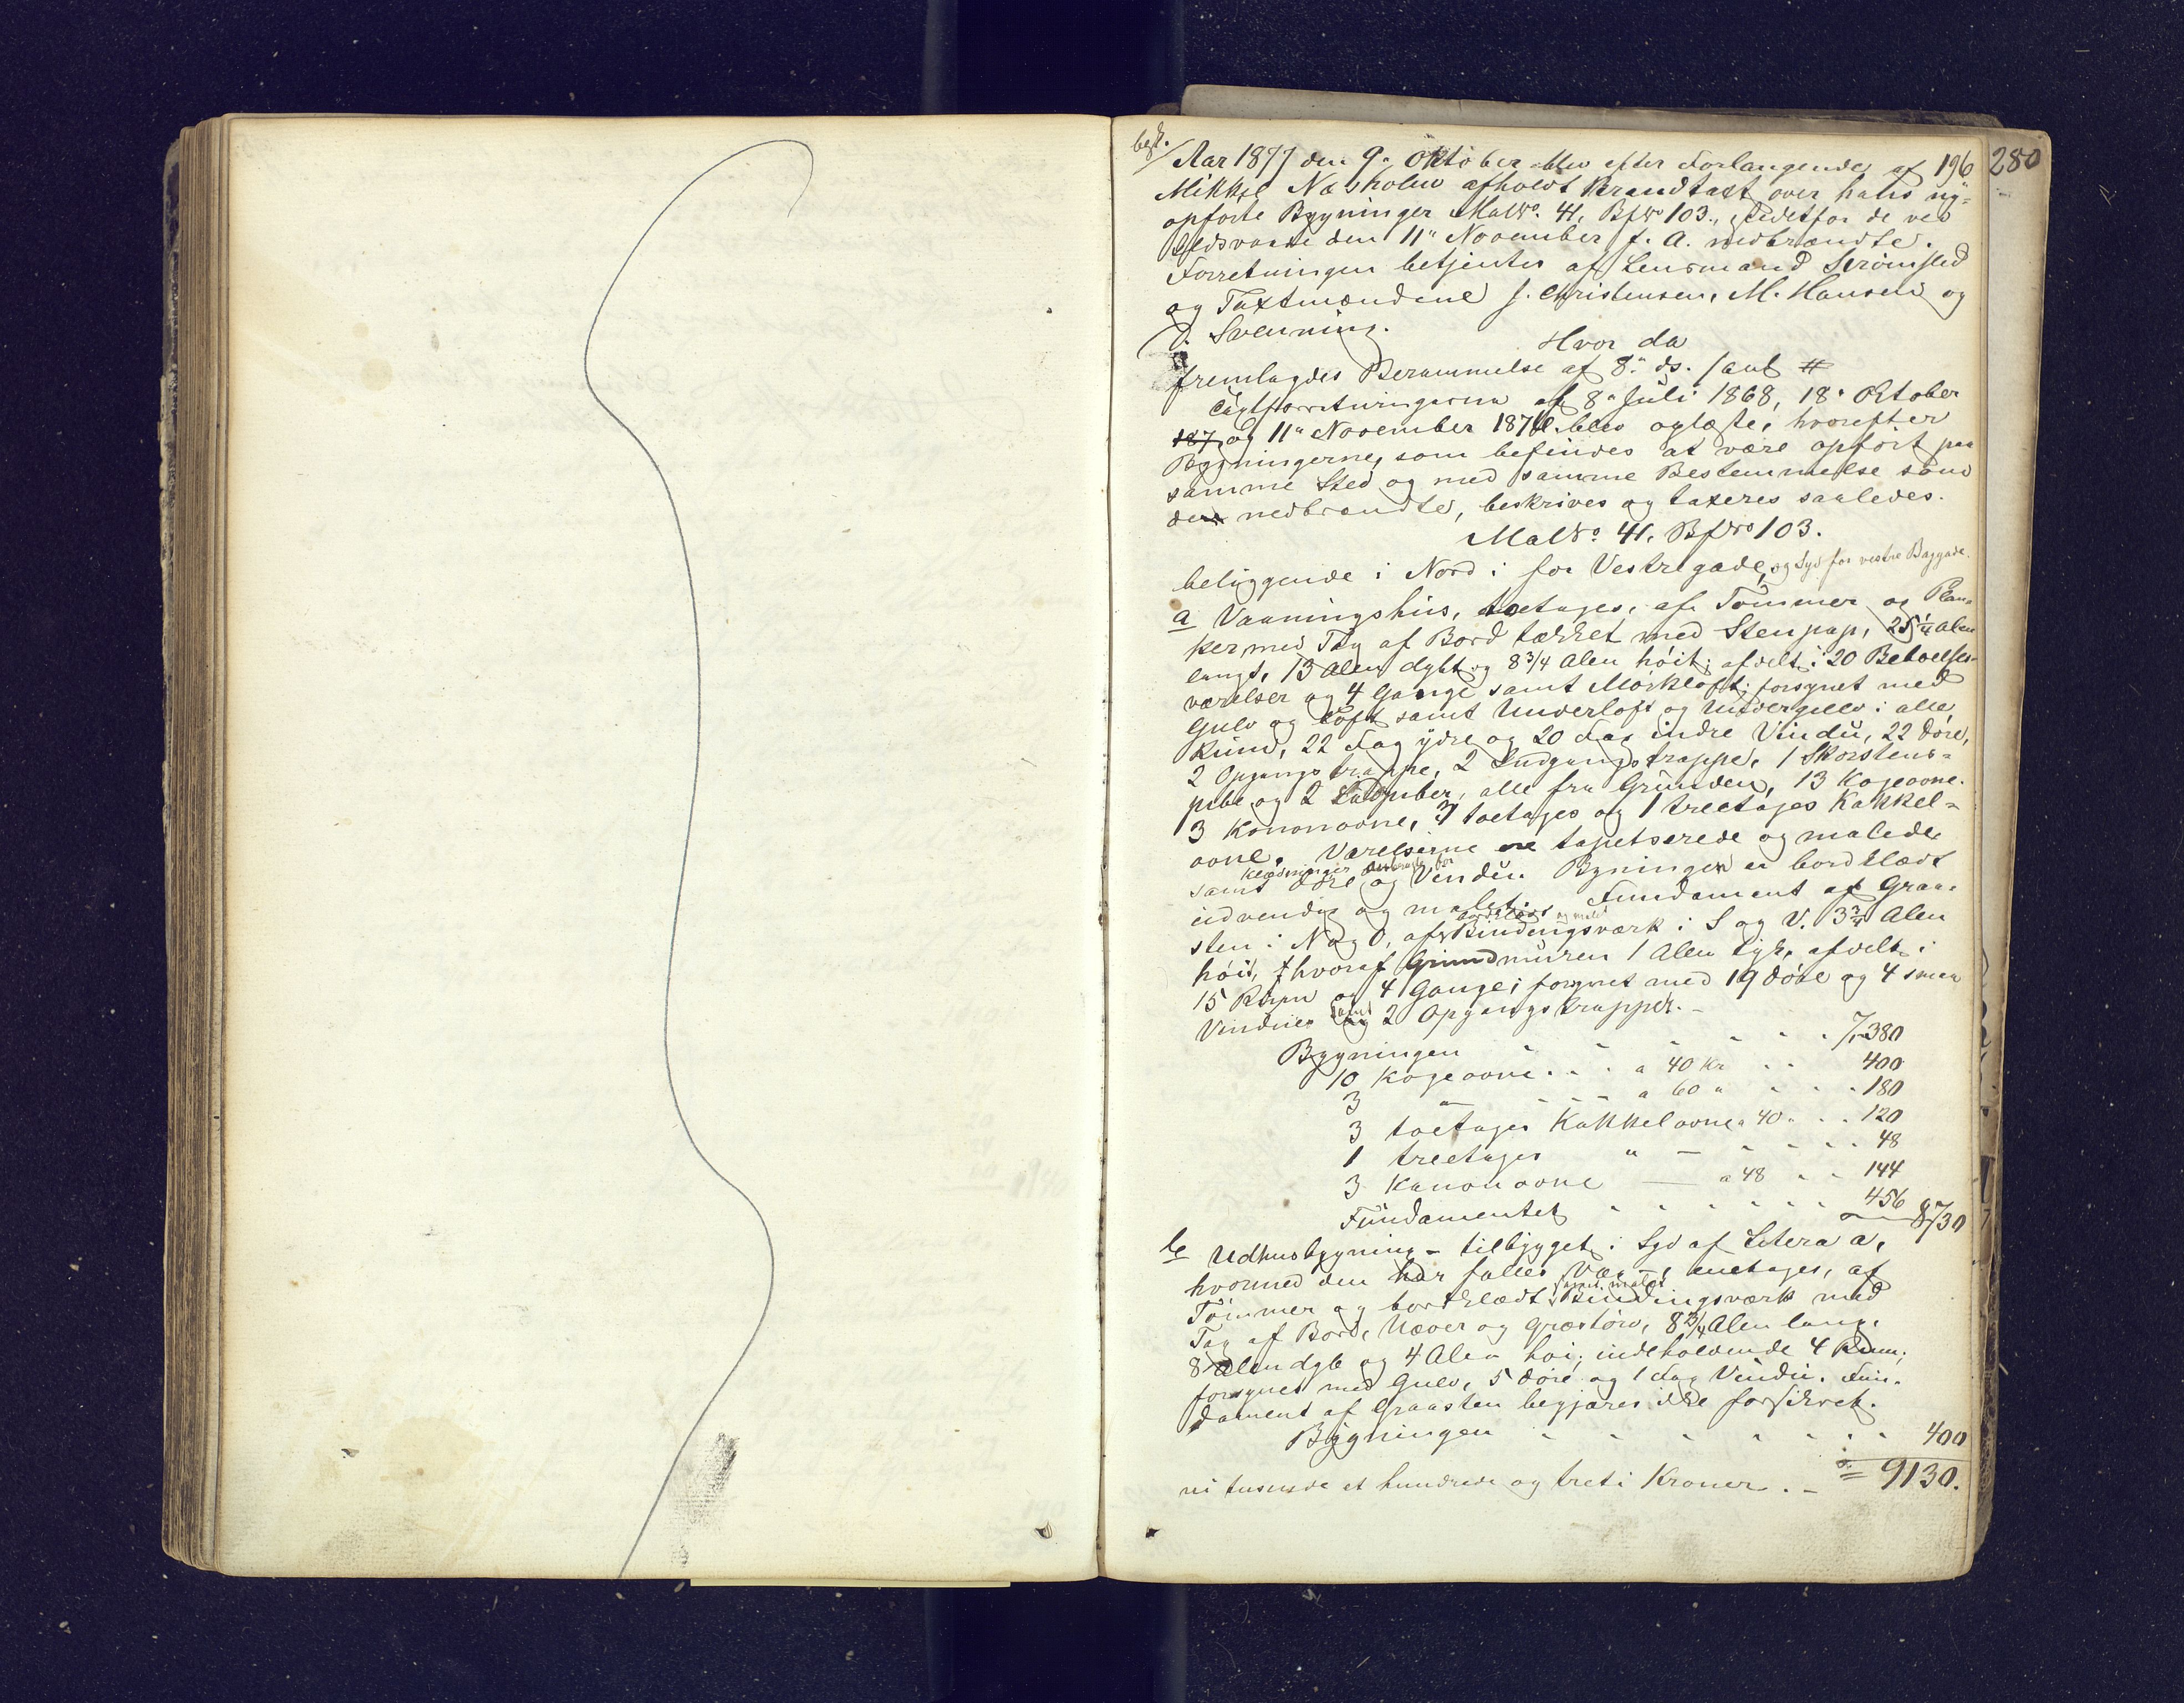 begt.
196 280
Aar 1877 den 9. Oktober blev efter Forlangende af
Mikkel Næsholm afholdt Brandtaxt over hans ny-
opførte Bygninger MatNo. 41, BfNo 103., istedetfor de ved
Ildsvaade den 11" November f. A. nedbrændte.
Forretningen betjentes af Lensmand Strømsted
og Taxtmændene J. Christensen, M. Hansen og
O. Svenning.
Hvor da
fremlagdes Berammelse af 8" ds. samt #
Taxtforretningerne af 8" Juli 1868, 18" Oktober
187 og 11" November 1876 blev oplæste, hvorefter
Bygningerne, som befindes at være opført paa
samme Sted og med samme Bestemmelse som
de nedbrændte, beskrives og taxeres saaledes.
MatNo. 41. BfNo 103.
beliggende i Nord i for Vestregade, og Syd for vestre Baggade.
a Vaaningshus, toetages, af Tømmer og Plan-
ker med Tag af Bord tækket med Stenpap, 25 1/4 Alen
langt, 13 Alen dybt og 8 3/4 Alen høit; afdelt i 20 Beboelses-
værelser og 4 Gange samt Mørkloft; forsynet med
Gulv og Loft samt Underloft og Undergulv i alle
Rum, 22 Fag ydre og 20 Fag indre Vindu, 22 Døre,
2 Opgangstrappe, 2 Indgangstrappe, 1 Skorstens-
pibe og 2 Ludpiber, alle fra Grunden, 13 Kogeovne.
3 Kononovne, 3 toetages og 1 treetages Kakkel-
ovne. Værelserne ere tapetserede og malede
samt Døre og Vindu. Bygningen er bordklædt
udvendig og malet. Fundament af Graa-
sten i N og O, af bordklædt og malet Bindingsværk i S og V. 3 3/4 Alen
høit, hvoraf Grundmuren 1 Alen tyk, afdelt i
15 Rum og 4 Gange; forsynet med 19 Døre og 4 smaa
Vinduer samt 2 Opgangstrapper. -
Bygningen . . . . . 7,380
10 Kogeovne . . . a 40 Kr . . 400
3 " - - - a 60 " . . . 180
3 toetages Kakkelovne a 40 " . . 120
1 treetages " - . . . . 48
3 Kanonovne — a 48 . . 144
Fundamentet . . . . . . 456 8730
b Udhusbygning - tilbygget i Syd af Litera a,
hvormed den har fælles Væg -, eenetages, af
Tømmer og bordklædt samt malet Bindingsværk med
Tag af Bord, Næver og Græstørv, 8 3/4 Alen lang.
8 Alen dyb og 4 Alen høi; indeholdende 4 Rum;
forsynet med Gulv, 5 Døre og 1 Fag Vindu. Fun-
dament af Graasten begjæres ikke forsikret.
Bygningen . . . . . . . 400
ni tusende et hundrede og treti Kroner. - = 9130.